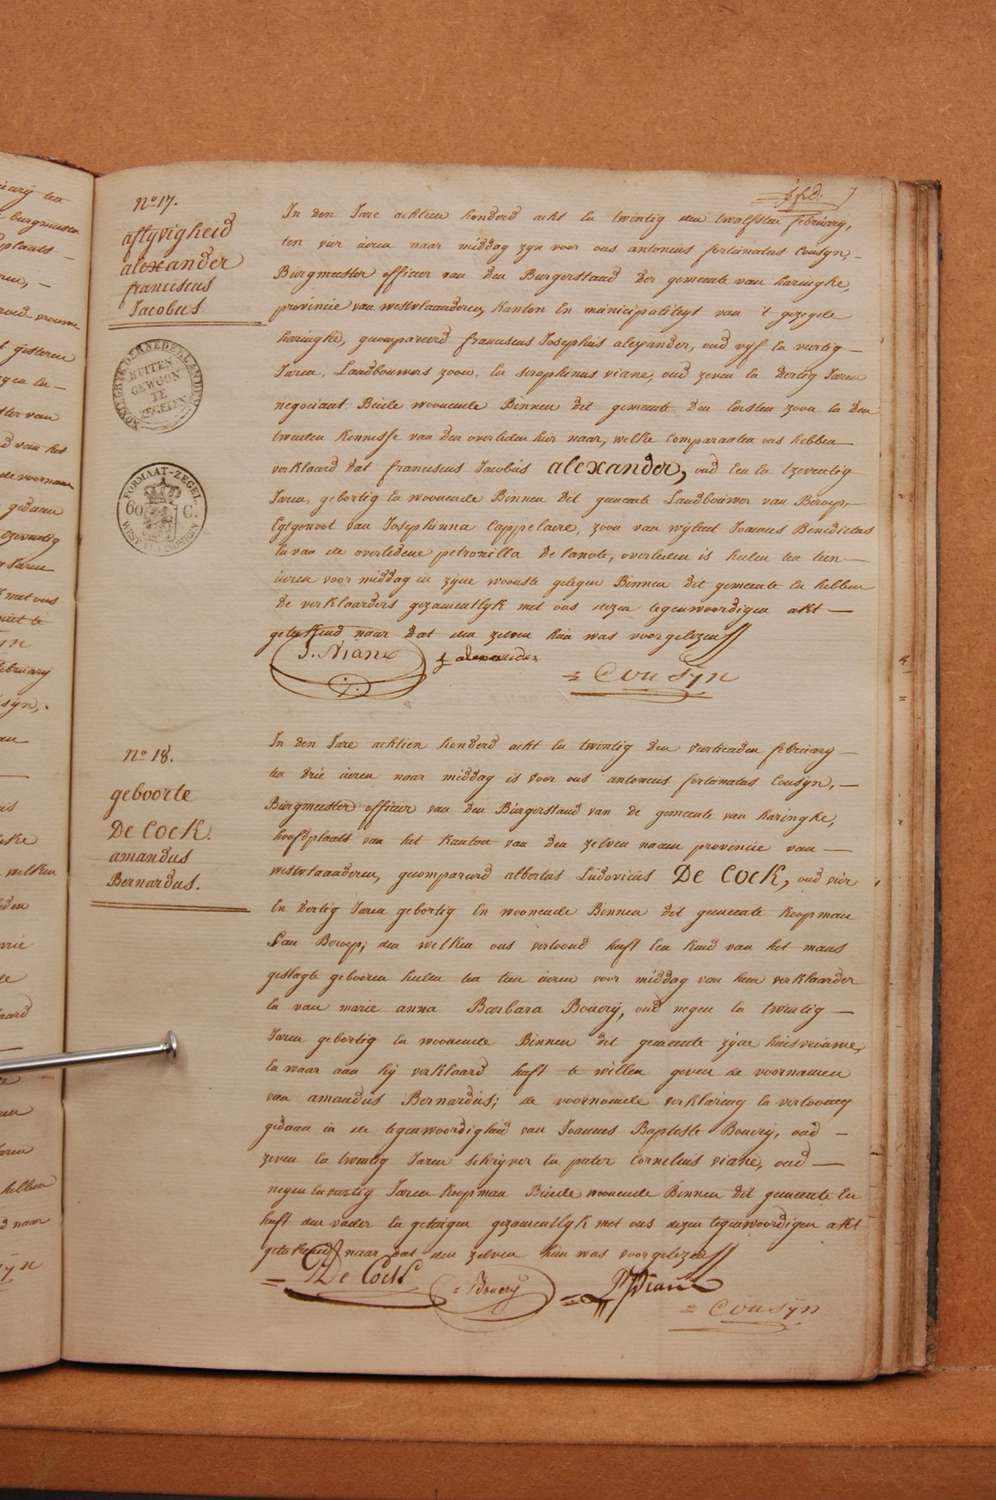 7
N° 17.
aflyvigheid
alexander
franciscus
Jacobus
KONINGRYK DER NEDERLANDEN
BUITEN
GEWOON
TE
ZEGELEN
FORMAAT-ZEGEL
60 C.
WEST VLAENDEREN
In den Jare achtien honderd acht en twintig den twalfsten februarij,
ten vier uren naar middag zyn voor ons antonius fortunatus Cousyn,
Burgmeester officier van den Burgerstand der gemeente van haringhe,
provincie van westvlaanderen, Kanton en municipaliteyt van 't gezegde
haringhe, gecompareerd franciscus Josephus alexander, oud vyf en viertig
Jaren, Landbouwers zoon, en seraphinus viane, oud zeven en dertig Jaren
negociant Beide woonende Binnen dit gemeente den eersten zoon en den
tweeden Kennisse van den overleden hier naar, welke comparanten ons hebben
verklaard dat franciscus Jacobus alexander, oud een en tzeventig
Jaren, gebortig en woonende Binnen dit gemeente Landbouwer van Beroep,
Egtgenoot van Josephinna Cappelaire, zoon van wylent Joannes Benedictus
en van de overledene petronilla De lanote, overleden is heden ten tien
uren voor middag in zyne woonste gelegen Binnen dit gemeente en hebben
De verklaarders gezamentlyk met ons dezen tegenwoordigen akt
getekend naar dat den zelven hun was voorgelezen
S. Viane
f alexander
Cousyn
N° 18.
geboorte
De Cock.
amandus
Bernardus.
In den Jare achtien honderd acht en twintig den viertienden februarij
ten drie uren naar middag is voor ons antonius fortunatus Cousyn,
Burgmeester officier van den Burgerstand van de gemeente van haringhe,
hoofdplaats van het Kanton van den zelven naam provincie van
westvlaanderen, gecompareerd albertus Ludovicus De Cock, oud vier
En dertig Jaren gebortig En woonende Binnen dit gemeente Koopman
van Beroep; den welken ons vertoond heeft een kind van het mans
geslagte gebooren heden ten tien uren voor middag van hem verklaarder
en van marie anna Barbara Bouery, oud negen en twintig
Jaren gebortig en woonende Binnen dit gemeente zyne huisvrouwe,
en waar aan hij verklaard heeft te willen geven de voornamen
van amandus Bernardus; de voornoemde verklaring en vertooning
gedaan in de tegenwoordigheid van Joannes Baptiste Bouery, oud
zeven en twintig Jaren schryver en pieter Cornelius viane, oud
negen en viertig Jaren Koopman Beide woonende Binnen dit gemeente En
heeft den vader en getuigen gezamentlyk met ons dezen tegenwoordigen akt
getekend naar dat den zelven hun was voorgelezen
De Cock
Bouery
Viane
Cousyn